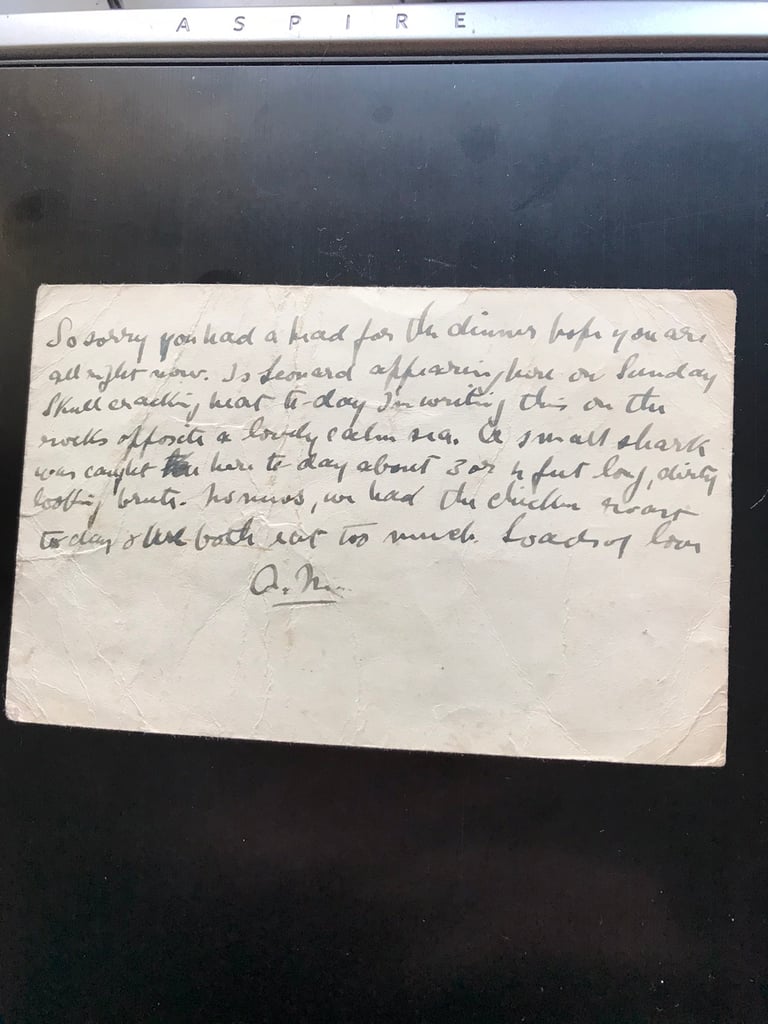 ASPIRE
So sorry you had a head for the dinner hope you are
all right now. Is Leonard appearing here on Sunday
Skull cracking heat to-day I'm writing this on the
rocks opposite a lovely calm sea. A small shark
was caught here to day about 3 or 4 feet long, dirty
looking brute. No news, we had the chicken roast
to day & we both eat too much. Loads of love
A.M.